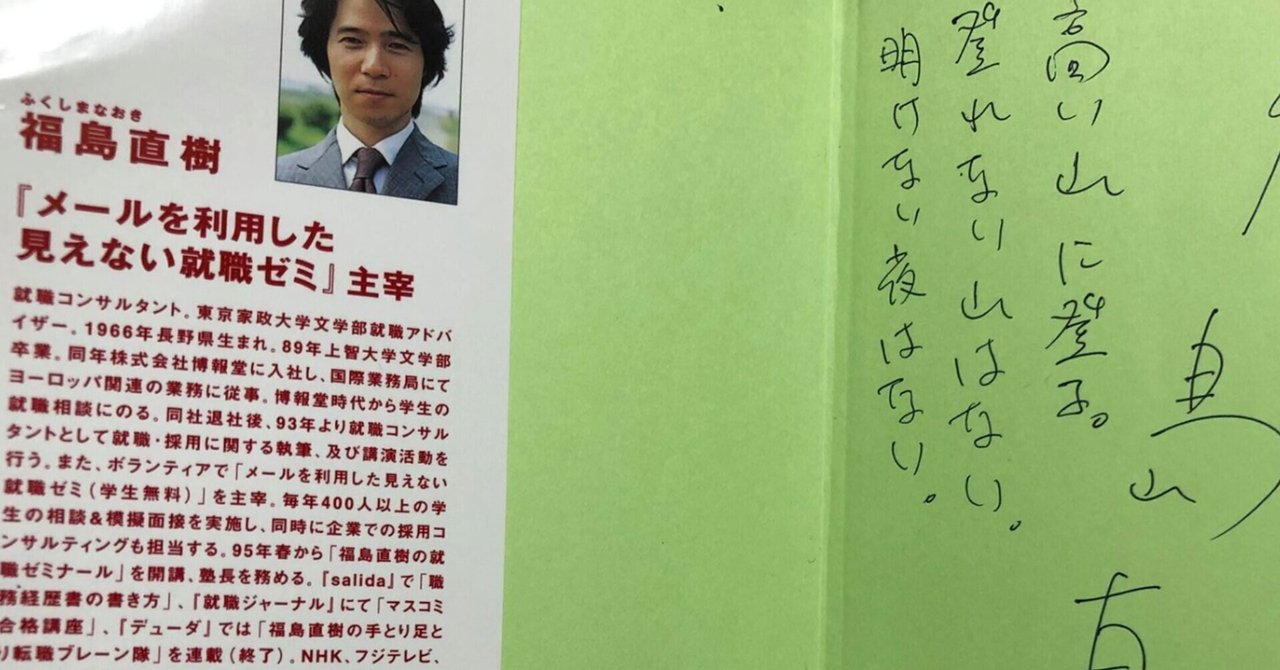 ふくしまなおき
福島直樹
『メールを利用した
見えない就職ゼミ』主宰
就職コンサルタント。東京家政大学文学部就職アドバ
イザー。1966年長野県生まれ。89年上智大学文学部
卒業。同年株式会社博報堂に入社し、国際業務局にて
ヨーロッパ関連の業務に従事。博報堂時代から学生の
就職相談にのる。同社退社後、93年より就職コンサル
タントとして就職・採用に関する執筆、及び講演活動を
行う。また、ボランティアで「メールを利用した見えない
就職ゼミ(学生無料)」を主宰。毎年400人以上の学
生の相談&模擬面接を実施し、同時に企業での採用コ
ンサルティングも担当する。95年春から「福島直樹の就
職ゼミナール」を開講、塾長を務める。『salida』で「職
務経歴書の書き方」、『就職ジャーナル』にて「マスコミ
合格講座」、『デューダ』では「福島直樹の手とり足と
り転職ブレーン隊」を連載(終了)。NHK、フジテレビ、
高い山に登る。
登れない山はない。
明けない夜はない。